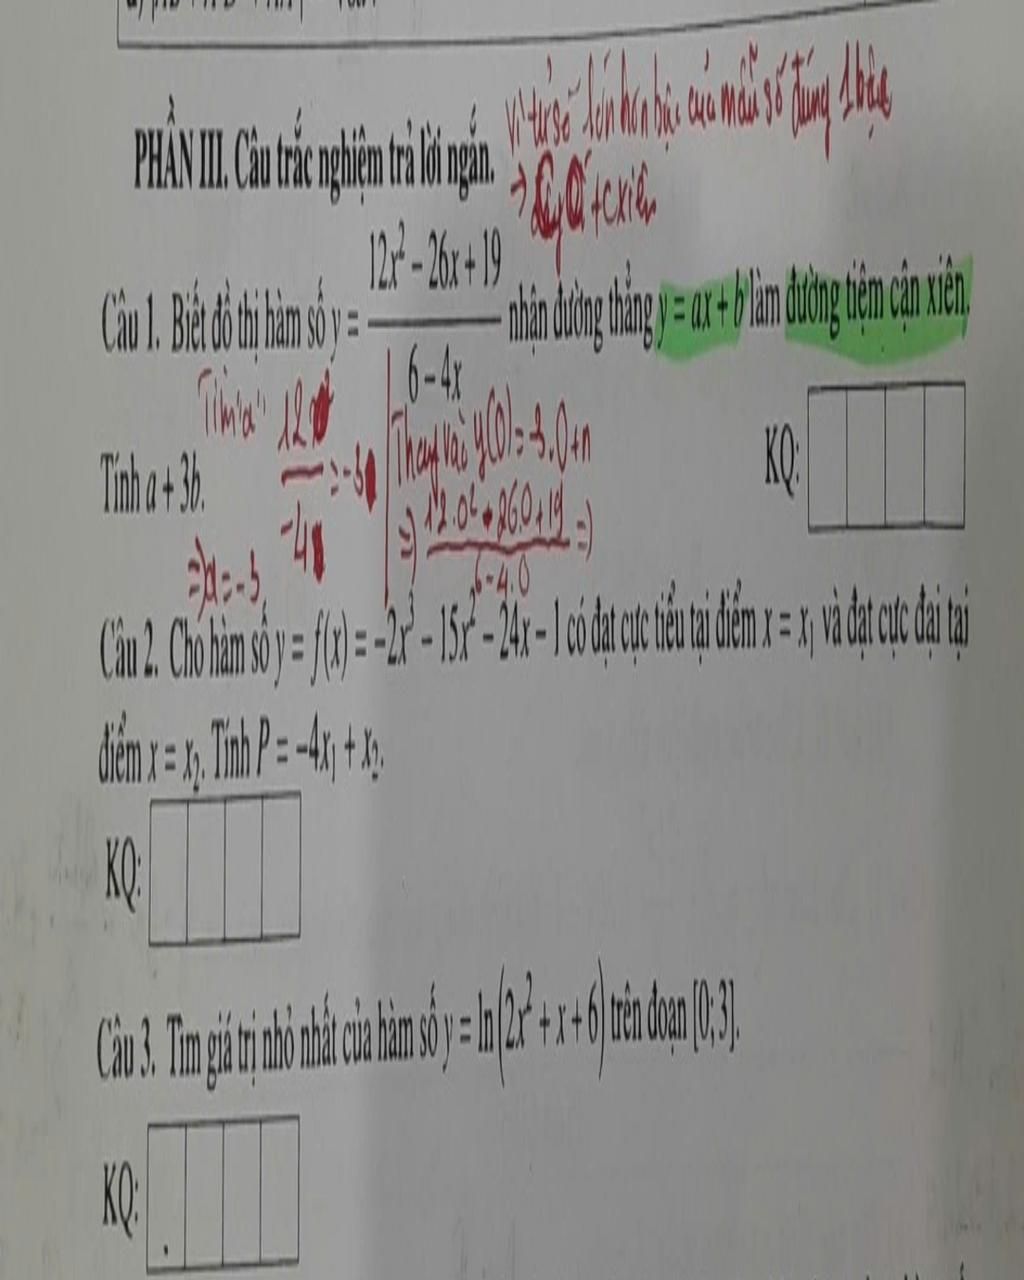 PHẦN III. Câu trắc nghiệm trả lời ngắn.
Vì tử số lớn hơn bậc của mẫu số đúng 1 bậc
→ + c xiên
Câu 1. Biết đồ thị hàm số y = \frac{12x² − 26x + 19}{6 − 4x} nhận đường thẳng y = ax + b làm đường tiệm cận xiên.
Tính a + 3b.
KQ:
Tìm "a"
\frac{12}{-4} = -3
⇒ a = -3
Thay vào y(0) = 3.0 + n
⇒ \frac{12.0² - 26.0 + 19}{6 - 4.0} ⇒
Câu 2. Cho hàm số y = f(x) = −2x³ − 15x² − 24x − 1 có đạt cực tiểu tại điểm x = x₁ và đạt cực đại tại
điểm x = x₂. Tính P = −4x₁ + x₂.
KQ:
Câu 3. Tìm giá trị nhỏ nhất của hàm số y = ln(2x² + x + 6) trên đoạn [0; 3].
KQ: